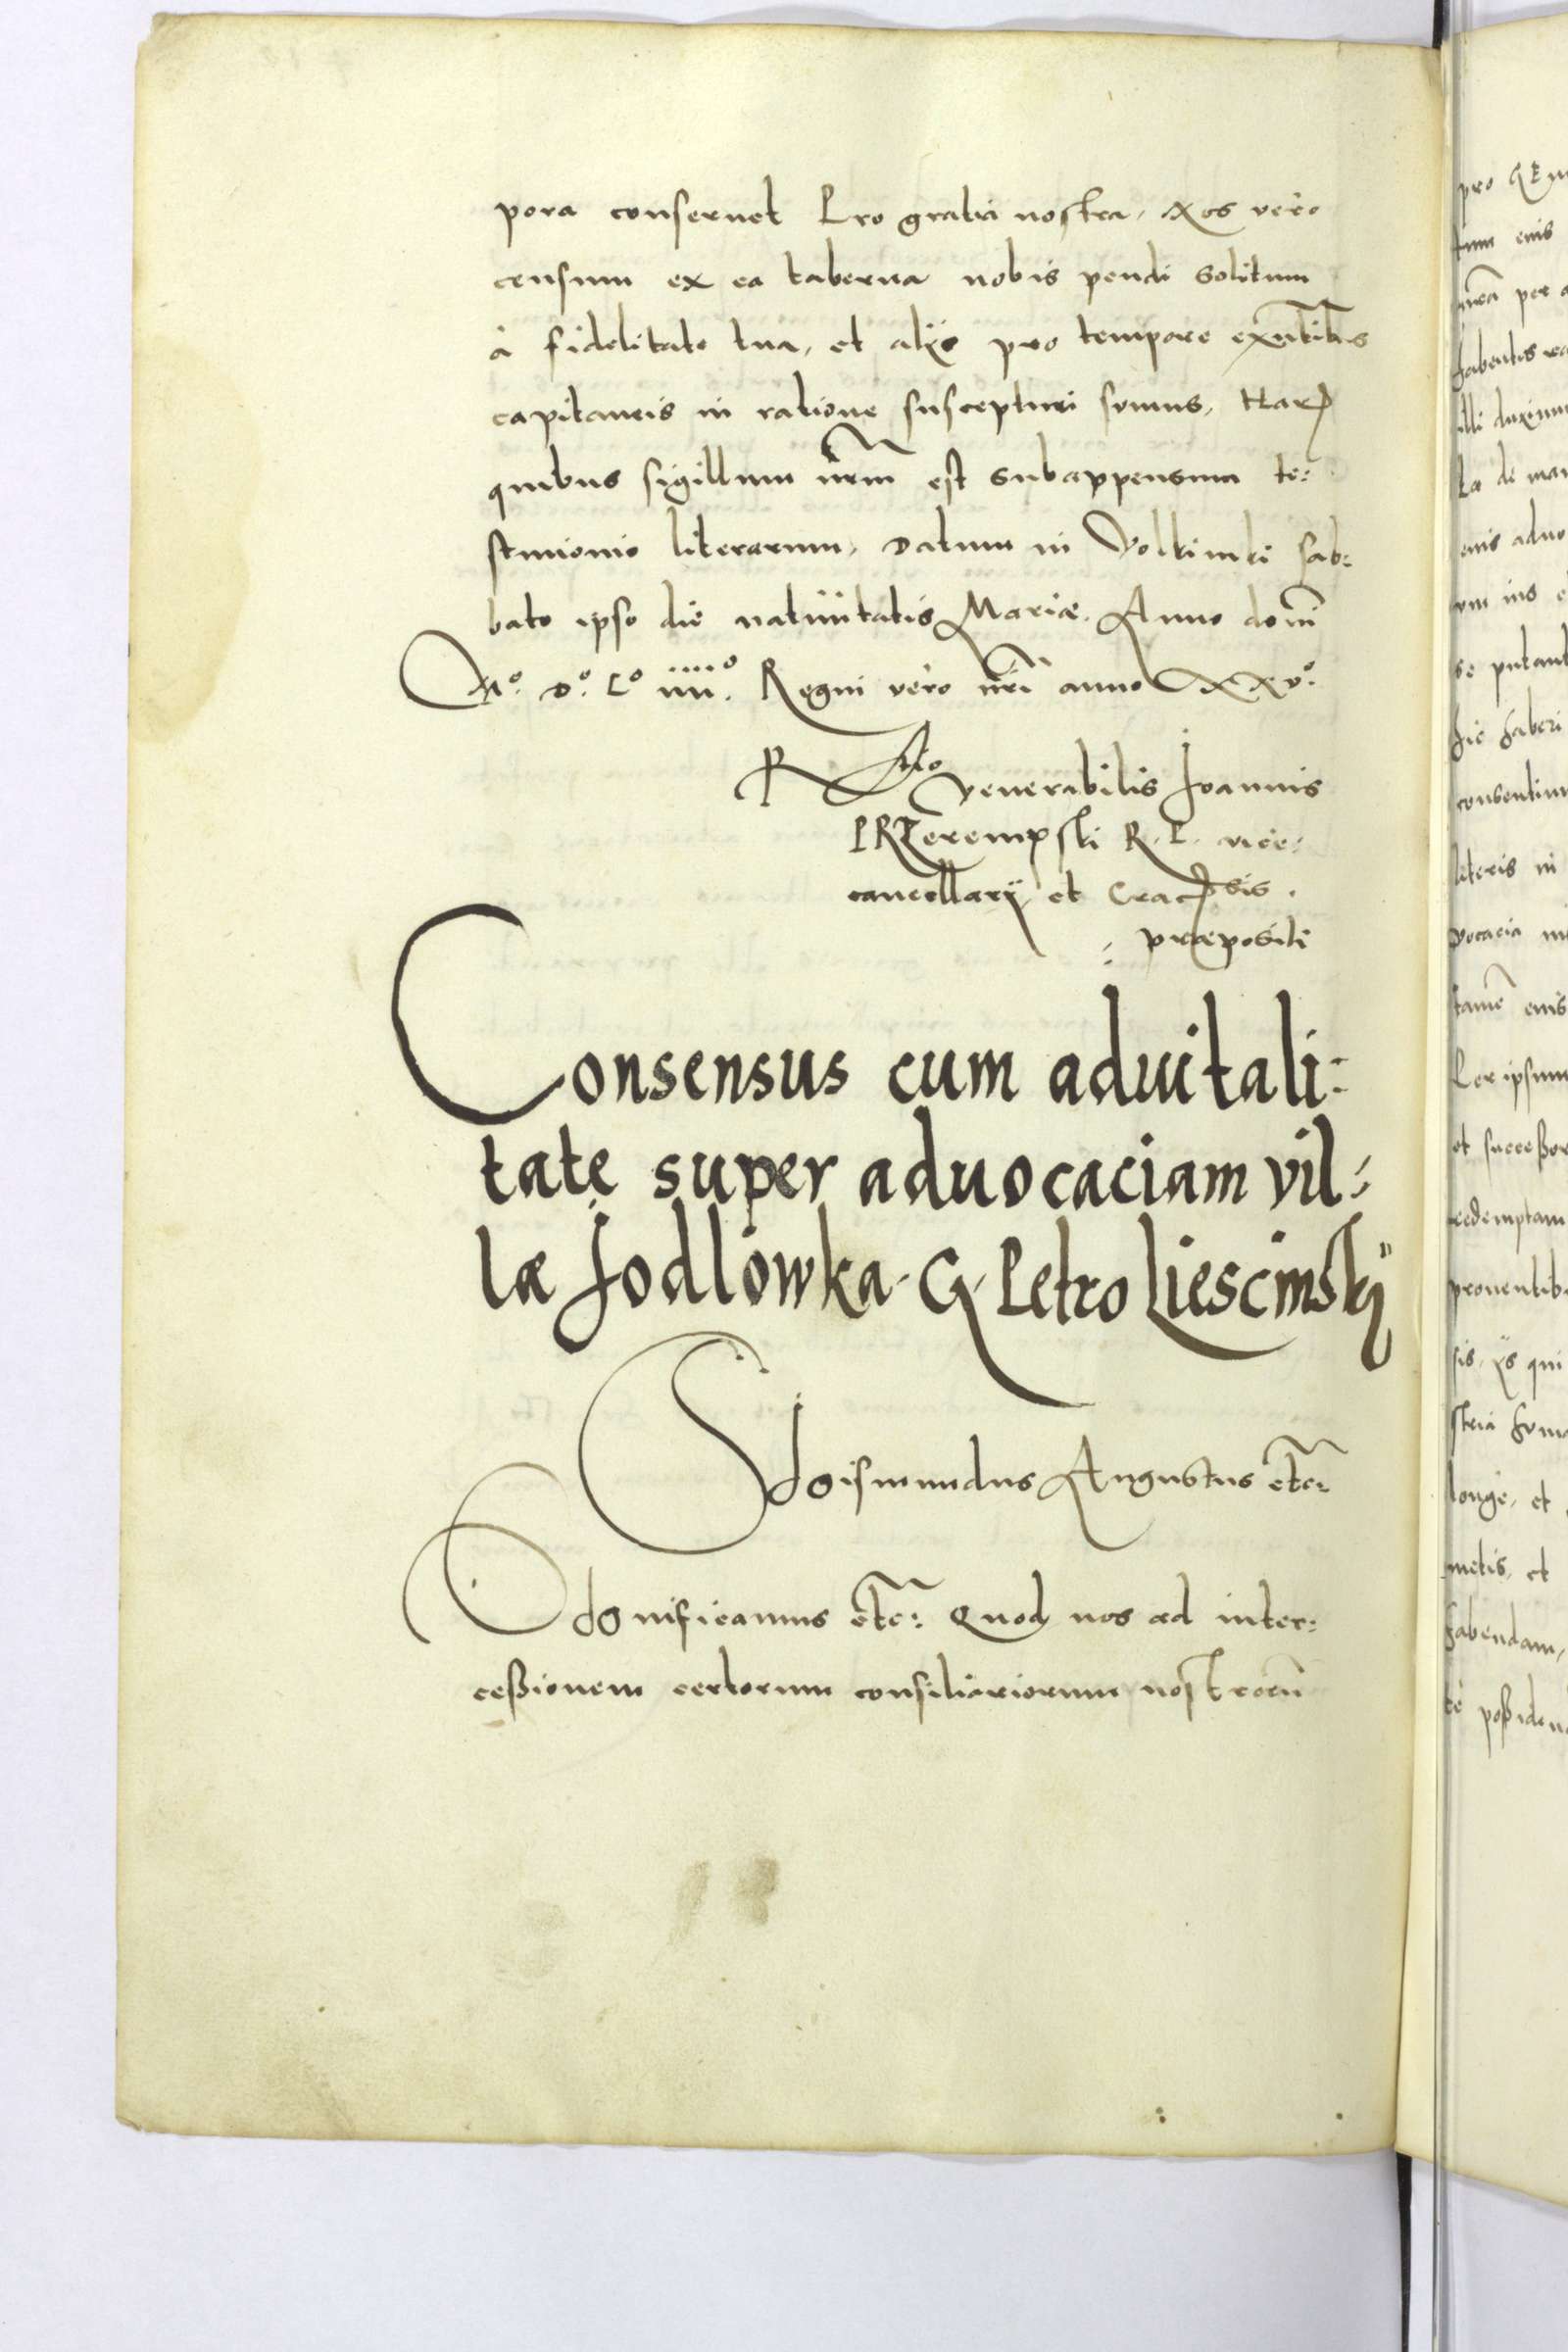 pora conseruet Pro gratia nostra, Nos vero
censum ex ea taberna nobis pendi solitum
à fidelitate tua, et alijs pro tempore exñtibus
capitaneis in ratione suscepturi sumus, Harꝝ
quibus sigillum nr̃m est subappensum te:
stimonio literarum, Datum in Voltinki sab:
bato ipso die natiuitatis Mariæ. Anno domĩ
Mº. Dº. Lº iiiiº. Regni vero nr̃i anno XXVº.
Rᵗⁱᵒ venerabilis Joannis
PRZerempski R. P. vice:
cancellarij et Cracꝝsis.
præpositi
Consensus cum aduitali:
tate super aduocaciam vil:
læ Jodlowka. G. Petro Liescinskij
Sigismundus Augustus etc̃
Significamus etc̃: Quod nos ad inter:
ceßionem certorum consiliariorum nostrorũ
pro
eius
nr̃ã per
habentis
illi duximus
de
eius aduo
ius
se putant
hic haberi
literis in
eius
Per ipsum
et succeßor
redemptam
prouentib
sis, ijs qui
longè, et
metis, et
habendam,